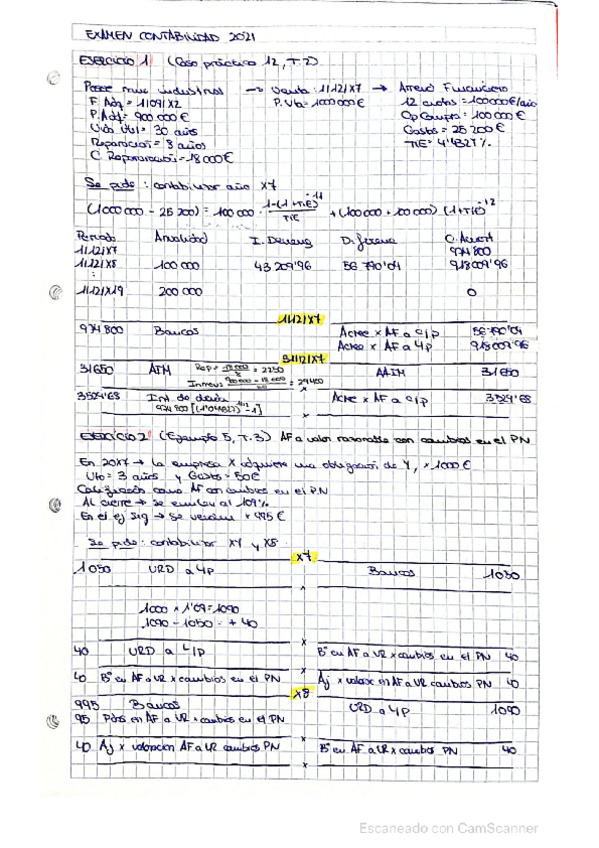 EXAMEN CONTABILIDAD 2021
EJERCICIO 1 (Caso práctico 12, T.2)
Posee nave industrial → Venta: 1/12/X7 → Arrend Financiero
F. Adq = 1/09/X2 P. Vta = 1000 000 € 12 cuotas = 100000 €/año
P. Adq = 900 000 € Op Compra = 100 000 €
Vida Útil = 30 años Gastos = 25 200 €
Reparación = 3 años TIE = 4'4327 %
C. Reparación = 18 000 €
Se pide: contabilizar año X7
Periodo Anualidad I. Deveng D. Generada C. Amort
1/12/X7 974 800
1/12/X8 100 000 43 209'96 56 790'04 918 009'96
:
1/12/X19 200 000 0
1/12/X7
974 800 Bancos Acree x AF a c/p 56 790'04
Acree x AF a l/p 918 009'96
31/12/X7
31 650 AIM AAIM 31 650
3524'68 Int de deuda Acre x AF a c/p 3524'68
EJERCICIO 2 (Ejemplo 5, T.3) AF a valor razonable con cambios en el PN
En 20X7 → la empresa X adquiere una obligación de Y, x 1000 €
Vto = 3 años y Gastos = 50 €
Calificados como AF con cambios en el PN
Al cierre → se emiten al 109%
En el ej sig → se venden x 995 €
Se pide: contabilizar X7 y X8
X7
1050 VRD a l/p Bancos 1050
1000 x 1'09 = 1090
1090 - 1050 = + 40
40 VRD a l/p Bº en AF a VR x cambios en el PN 40
40 Bº en AF a VR x cambios en el PN Aj x valorac en AF a VR cambios PN 40
X8
995 Bancos VRD a l/p 1090
95 Pdas en AF a VR x cambios en el PN
40 Aj x valoracion AF a VR cambios PN Bº en AF a VR x cambios PN 40
Escaneado con CamScanner